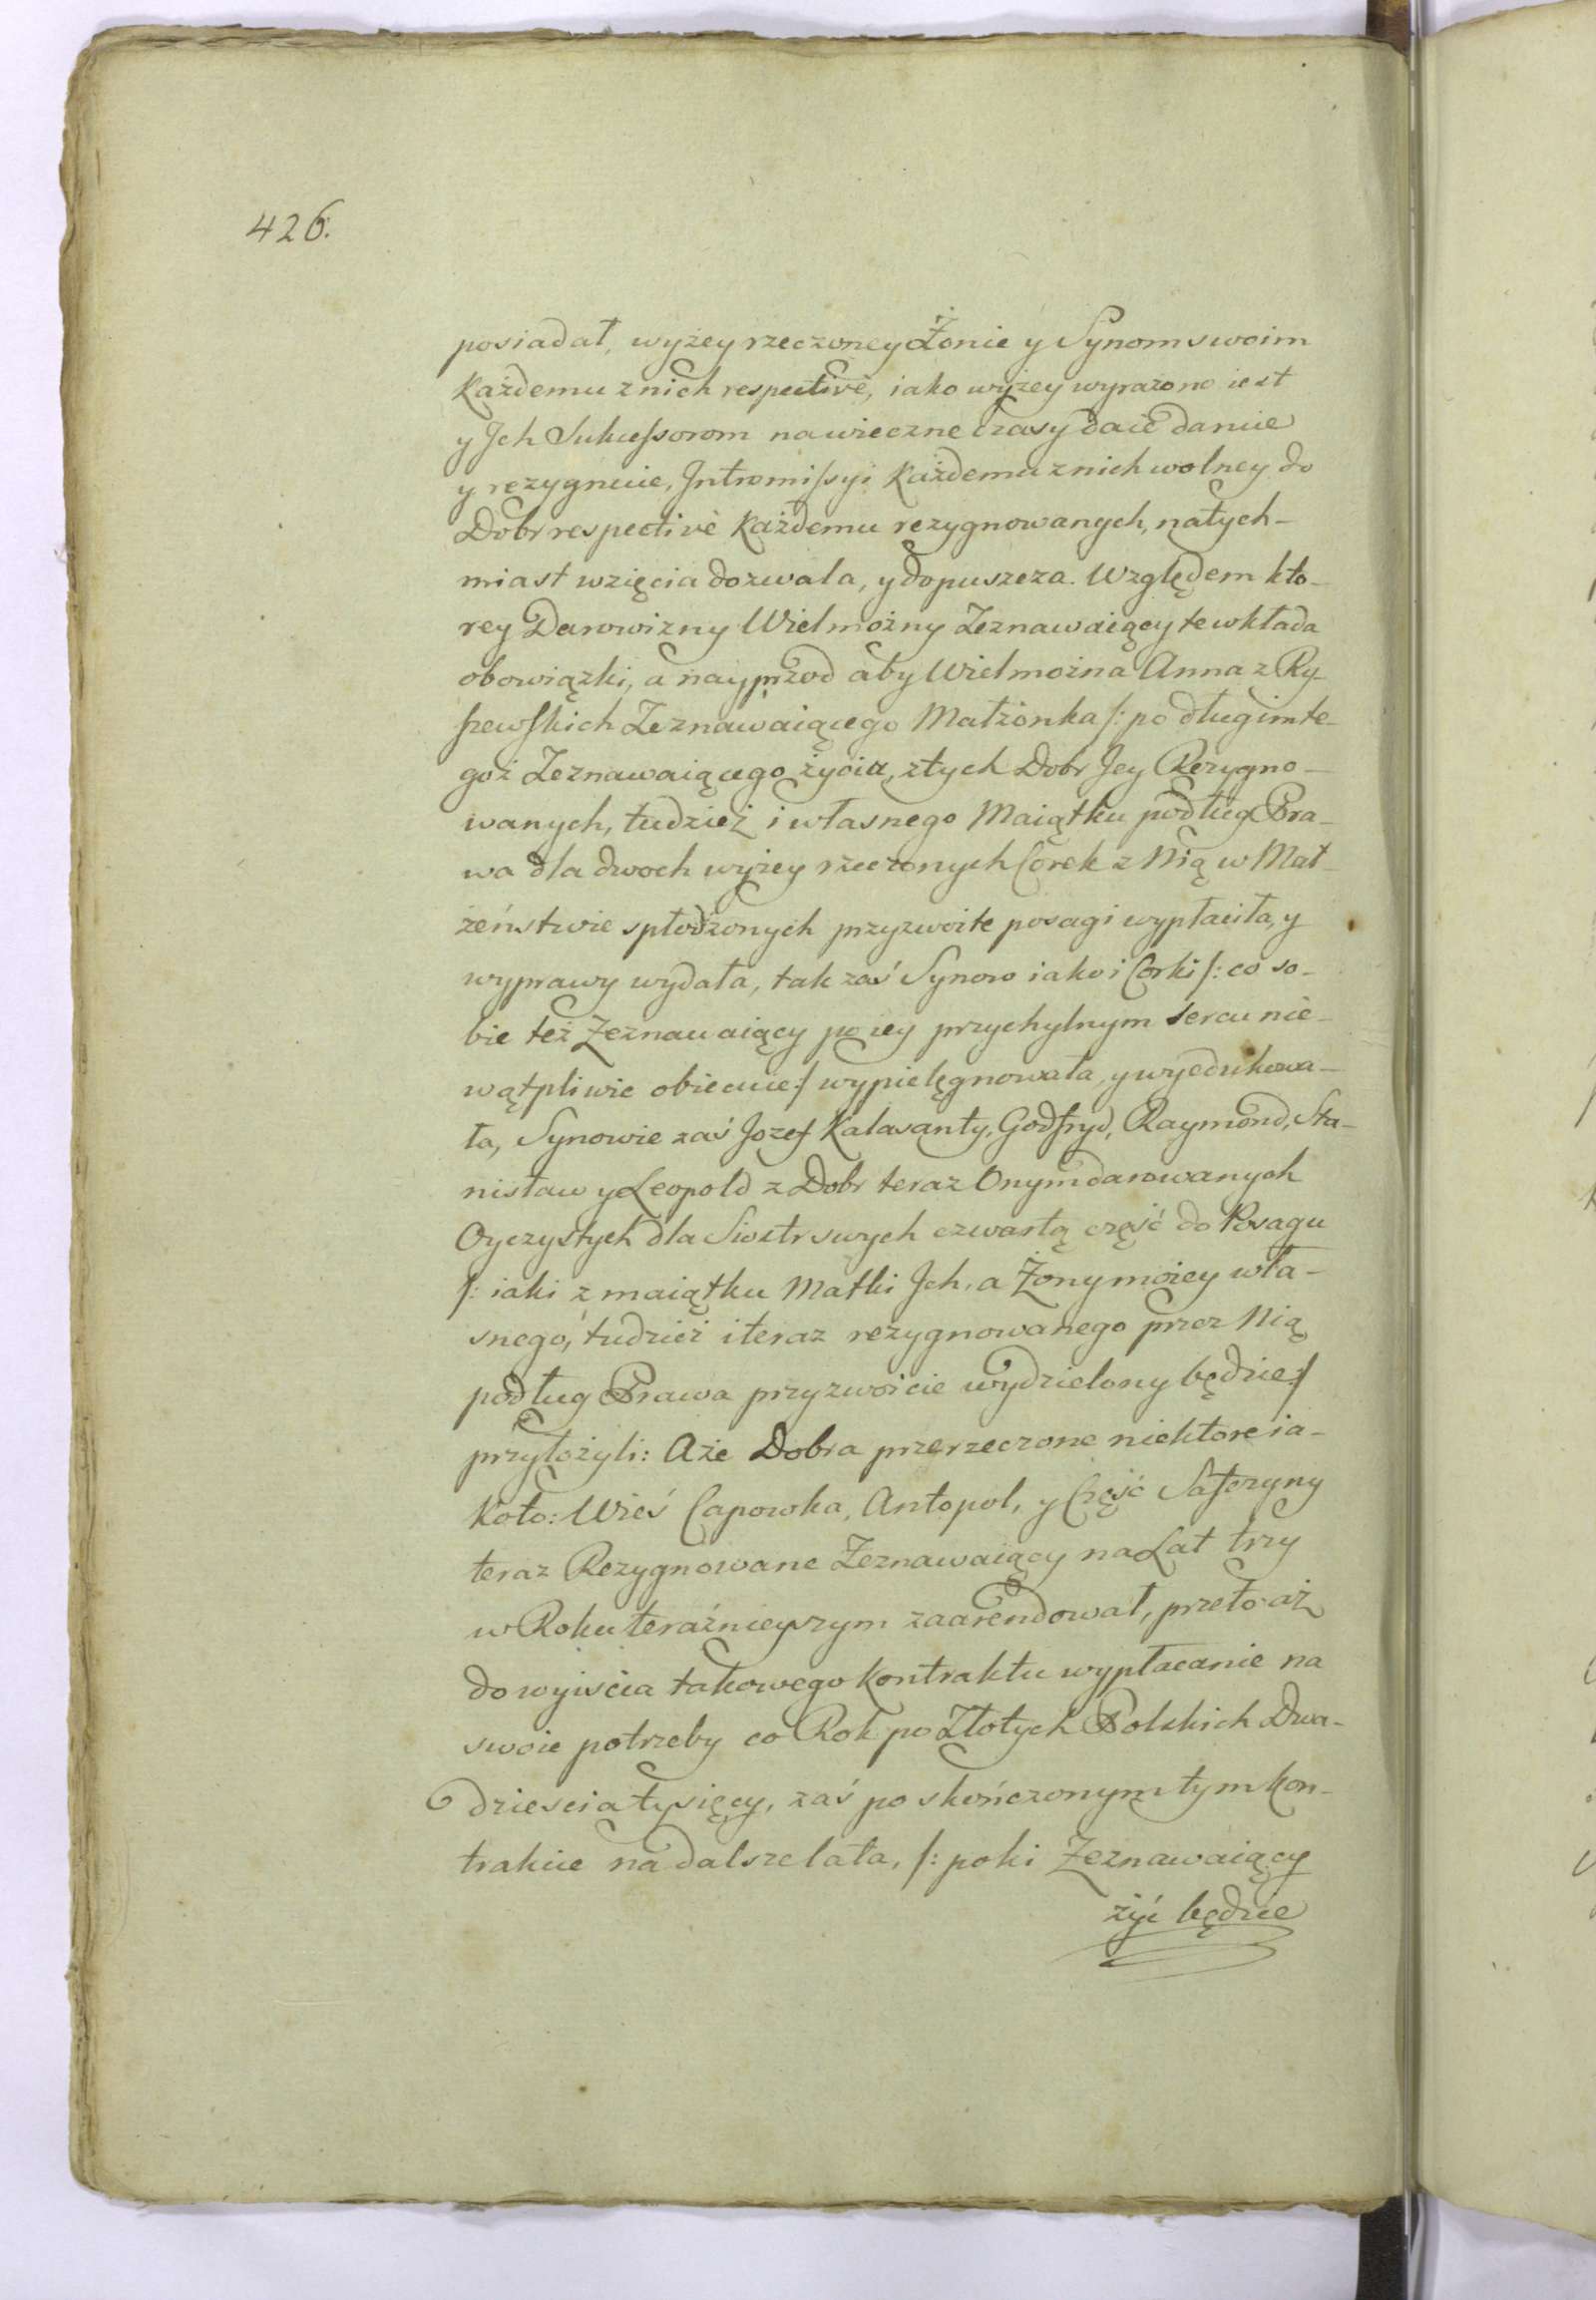 426.
posiadał, wyżey rzeczoney Żonie y Synom swoim
Każdemu z nich respectivè, iako wyżey wyrażono iest
y Jch Sukcessorom na wieczne czasy daie daruie
y rezygnuie, Intromissyi Każdemu z nich wolney do
Dobr respectivè Każdemu rezygnowanych, natych-
miast wzięcia dozwala, y dopuszcza. Względem kto-
rey Darowizny Wielmożny Zeznawaiący te wkłada
obowiązki, a nayprzod aby Wielmożna Anna z Ry-
szewskich Zeznawaiącego Małżonka /: po długim te-
goż Zeznawaiącego życiu, z tych Dobr Jey Rezygno-
wanych, tudzież i własnego Maiątku podług Pra-
wa dla dwoch wyżey rzeczonych Corek z Nią w Mał-
żeństwie spłodzonych przyzwoite posagi wypłaciła, y
wyprawy wydała, tak zaś Synow iako i Corki /: co so-
bie też Zeznawaiący po iey przychylnym sercu nie-
wątpliwie obiecuie :/ wypielęgnowała, y wyedukowa-
ła, Synowie zaś Jozef Kalasanty, Godfryd, Raymond, Sta-
nisław y Leopold z Dobr teraz Onym darowanych
Oyczystych dla Siostr swych czwartą część do Posagu
/: iaki z maiątku Matki Jch, a Żony moiey wła-
snego, tudzież i teraz rezygnowanego przez Nią
podług Prawa przyzwoicie wydzielony będzie :/
przyłożyli: Aże Dobra przerzeczone niektore ia-
koto: Wieś Capowka, Antopol, y Część Saferyny
teraz Rezygnowane Zeznawaiący na Lat trzy
w Roku teraźnieyszym zaarendował, przeto aż
do wyiścia takowego kontraktu wypłacanie na
swoie potrzeby co Rok po Złotych Polskich Dwa-
dziescia tysięcy, zaś po skończonym tym kon-
trakcie na dalsze lata, /: poki Zeznawaiący
żyć będzie